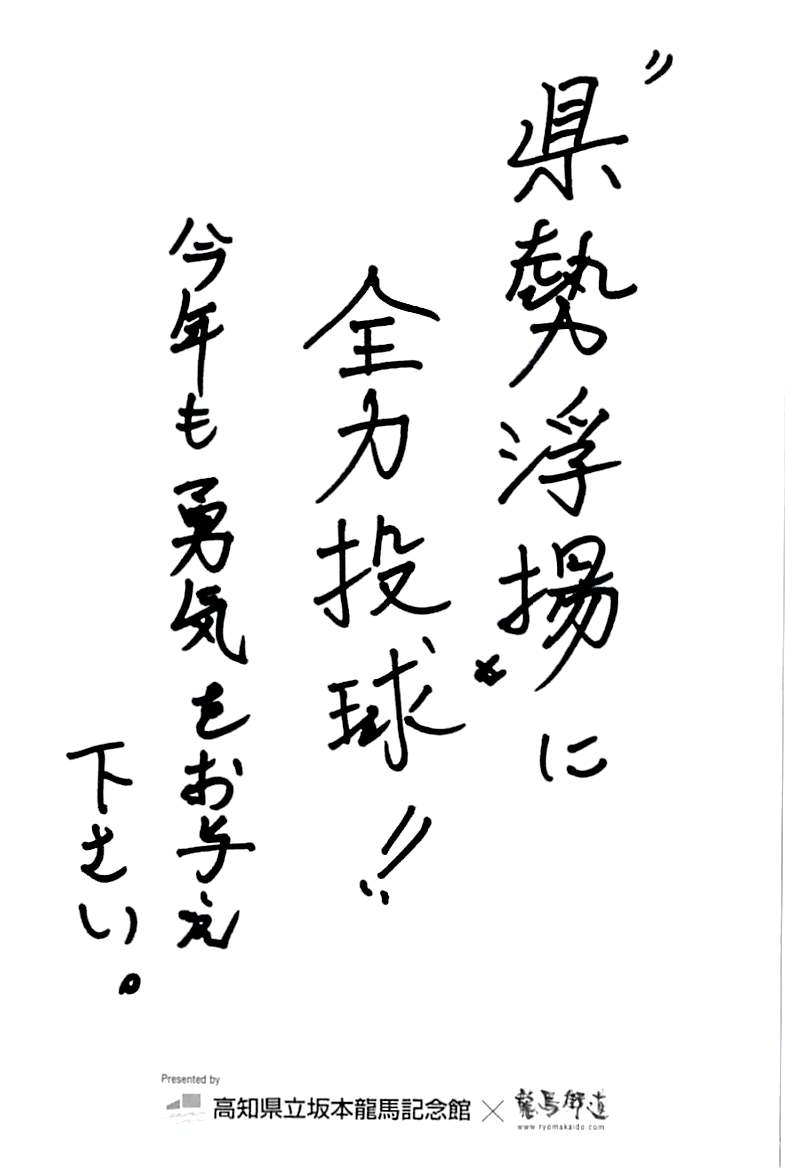 〃県勢浮揚〃に
全力投球!!
今年も勇気をお与え
下さい。
Presented by
高知県立坂本龍馬記念館×龍馬街道
www.ryomakaido.com